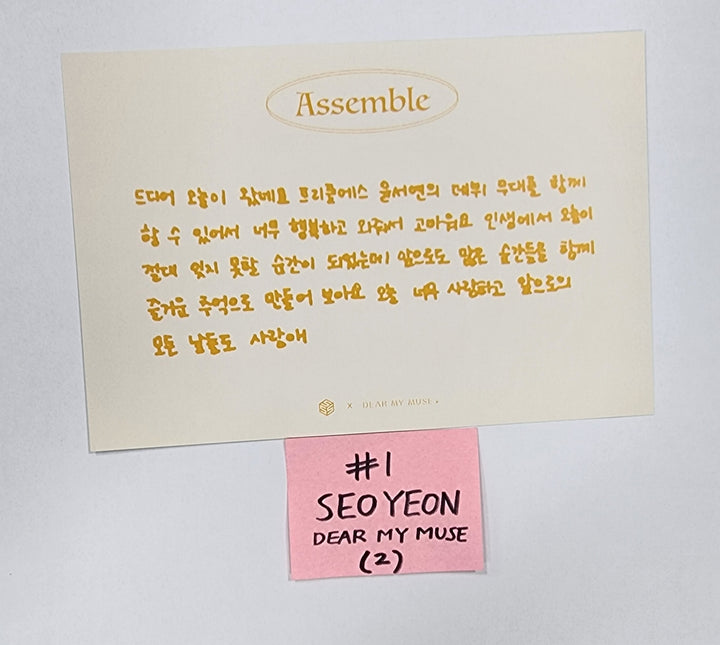 Assemble
드디어 오늘이 왔네요 트리플에스 윤서연의 데뷔 무대를 함께
할 수 있어서 너무 행복하고 와줘서 고마워요 인생에서 오늘이
절대 잊지 못할 순간이 되었는데 앞으로도 많은 순간들을 함께
즐거운 추억으로 만들어 보아요 오늘 너무 사랑하고 앞으로의
모든 날들도 사랑해
X DEAR MY MUSE
#1
SEOYEON
DEAR MY MUSE
(2)